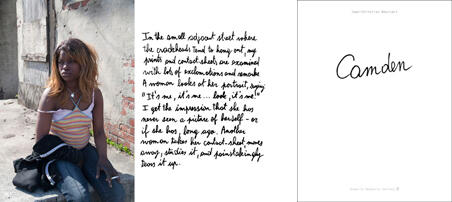 In the small adjacent street where
the crackheads tend to hang out, my
prints and contact sheets are examined
with lots of exclamations and remarks.
A woman looks at her portrait, saying
"It's me, it's me... look, it's me!"
I get the impression that she has
never seen a picture of herself - or
if she has, long ago. Another
woman takes her contact-sheet, moves
away, studies it, and painstakingly
tears it up.
Jean-Christian Bourcart
Camden